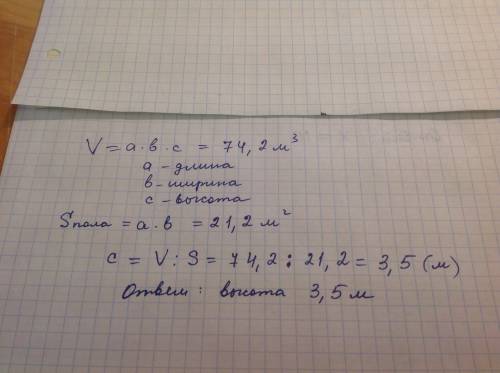 V = a · в · c = 74,2 м³
a - длина
в - ширина
c - высота
Sпола = a · в = 21,2 м²
c = V : S = 74,2 : 21,2 = 3,5 (м)
Ответ: высота 3,5 м